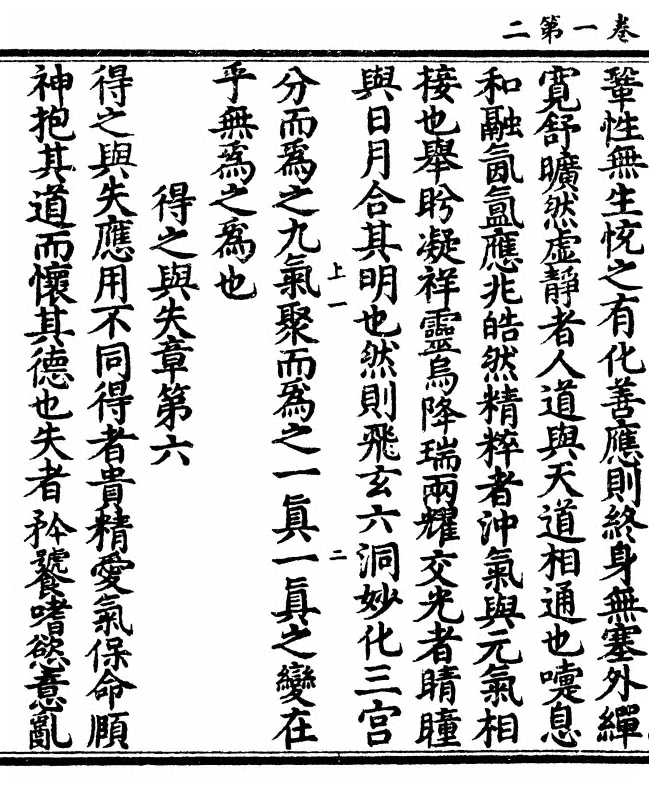 卷一第二
鞏性無生怳之有化善應則終身無塞外繟
寛舒曠然虛靜者人道與天道相通也嚏息
和融氤氳應兆皓然精粹者沖氣與元氣相
接也舉眄凝祥靈烏降瑞兩耀交光者睛瞳
與日月合其明也然則飛玄六洞妙化三宮
上一
二
分而爲之九氣聚而爲之一眞一眞之變在
乎無爲之爲也
得之與失章第六
得之與失應用不同得者貴精愛氣保命頤
神抱其道而懷其德也失者矜饕嗜慾意亂